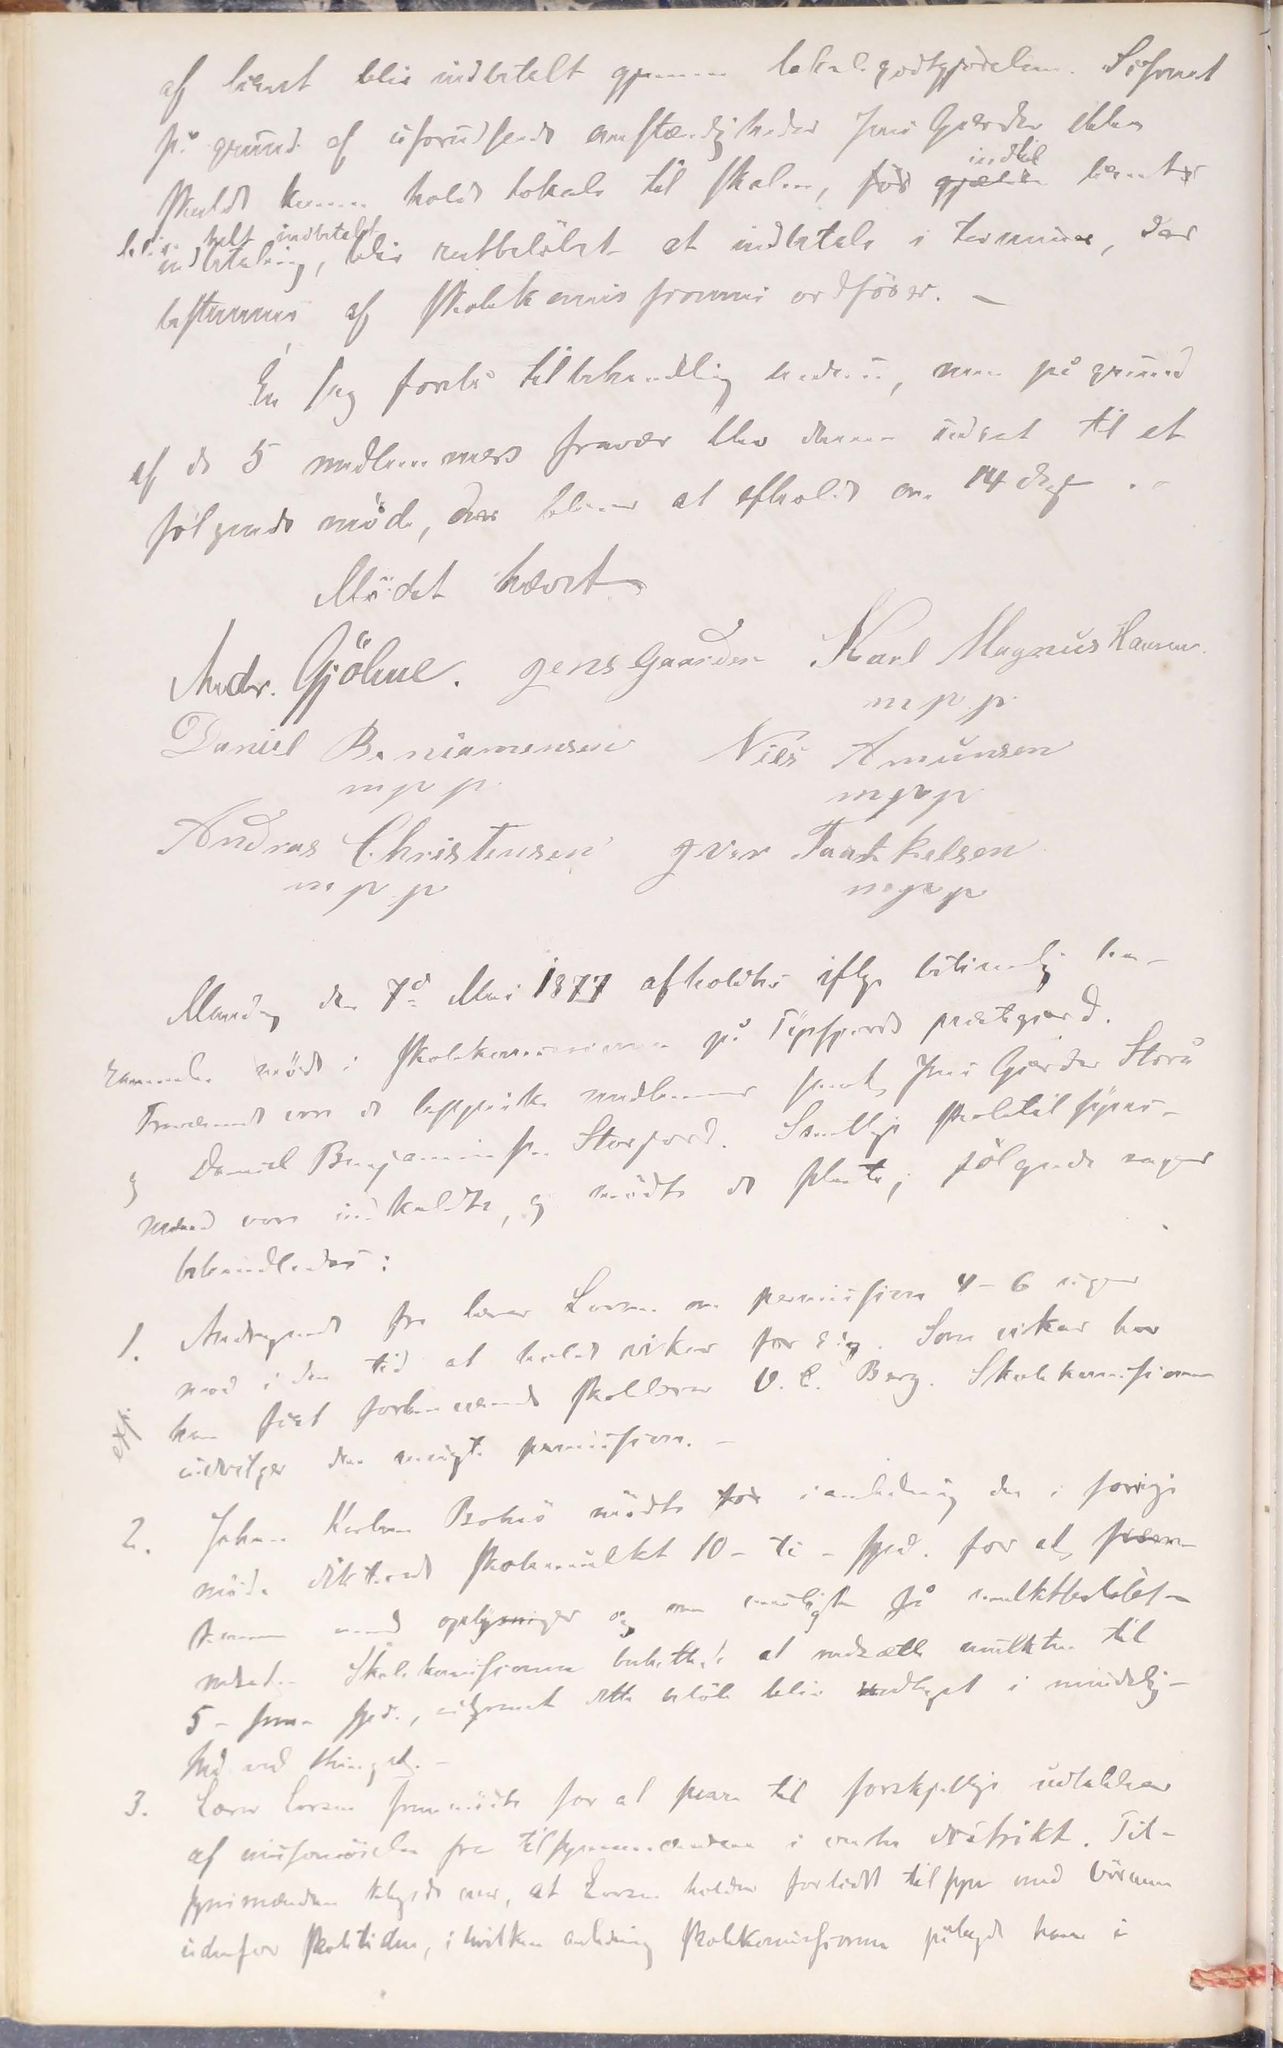 af lånet blir indbetalt gjennem lokalegodtgjørelsen. Såfremt
på grund af uforudseede omstændigheder Jens Gjærder ikke
skulde kunne holde lokale til skolen, før gjælden indtil lånet
helt indbetalt
indbetaling, blir restbeløbet at indbetale i terminer, der
bestemmes af skolekommissionens ordfører. —
En sag forelå til behandling endnu, men på grund
af de 5 medlemmers fravær blev denne udsat til et
følgende møde, der bliver at afholde om 14 dage
Mödet hævet
Andr. Gjölme. Jens Gaarder Karl Magnus Hansen
m p p
Daniel Beniamensen Nils Amunsen
m p p m p p
Andras Christensen Iver Taarkelsen
m p p m p p
Mandag den 7de Mai 1877 afholdtes ifølge betimelig be-
rammelse møde i skolekommissionen på Tysfjords præstegård.
Fraværende var de lappiske medlemmer samt Jens Gjærder Storå
og Daniel Benjaminsen Storfjord. Samtlige skoletilsyns-
mænd vare indkaldte, og mødte de fleste; følgende sager
behandledes:
1. Andragende fra lærer Lorsen om permission 4-6 uger
mod i den tid at holde vikar for sig. Som vikar har
exp. han fået forhenværende skolelærer O. E. Berg. Skolekommissionen
indvilger den ansøgte permission. —
2. Johan Korhen Bohnö mødte for i anledning den i forrige
møde dikterede skolemulkt 10 - ti - spd. for at frem
komme med oplysninger og om muligt få mulktbeløbet
nedsat. Skolekommissionen besluttede at nedsætte mulkten til
5 - fem spd., såfremt dette beløb blir vedtaget i mindelig-
hed ved thinget. —
3. Lærer Lorsen fremmødte for at svare til forskjellige udtalelser
af misfornøielse fra tilsynsmændene i andre distrikt. Til-
synsmænden klagede over, at Lorsen holder forlidt tilsyn med börnene
udenfor skoletiden, i hvilken anledning skolekommissionen pålagde ham i